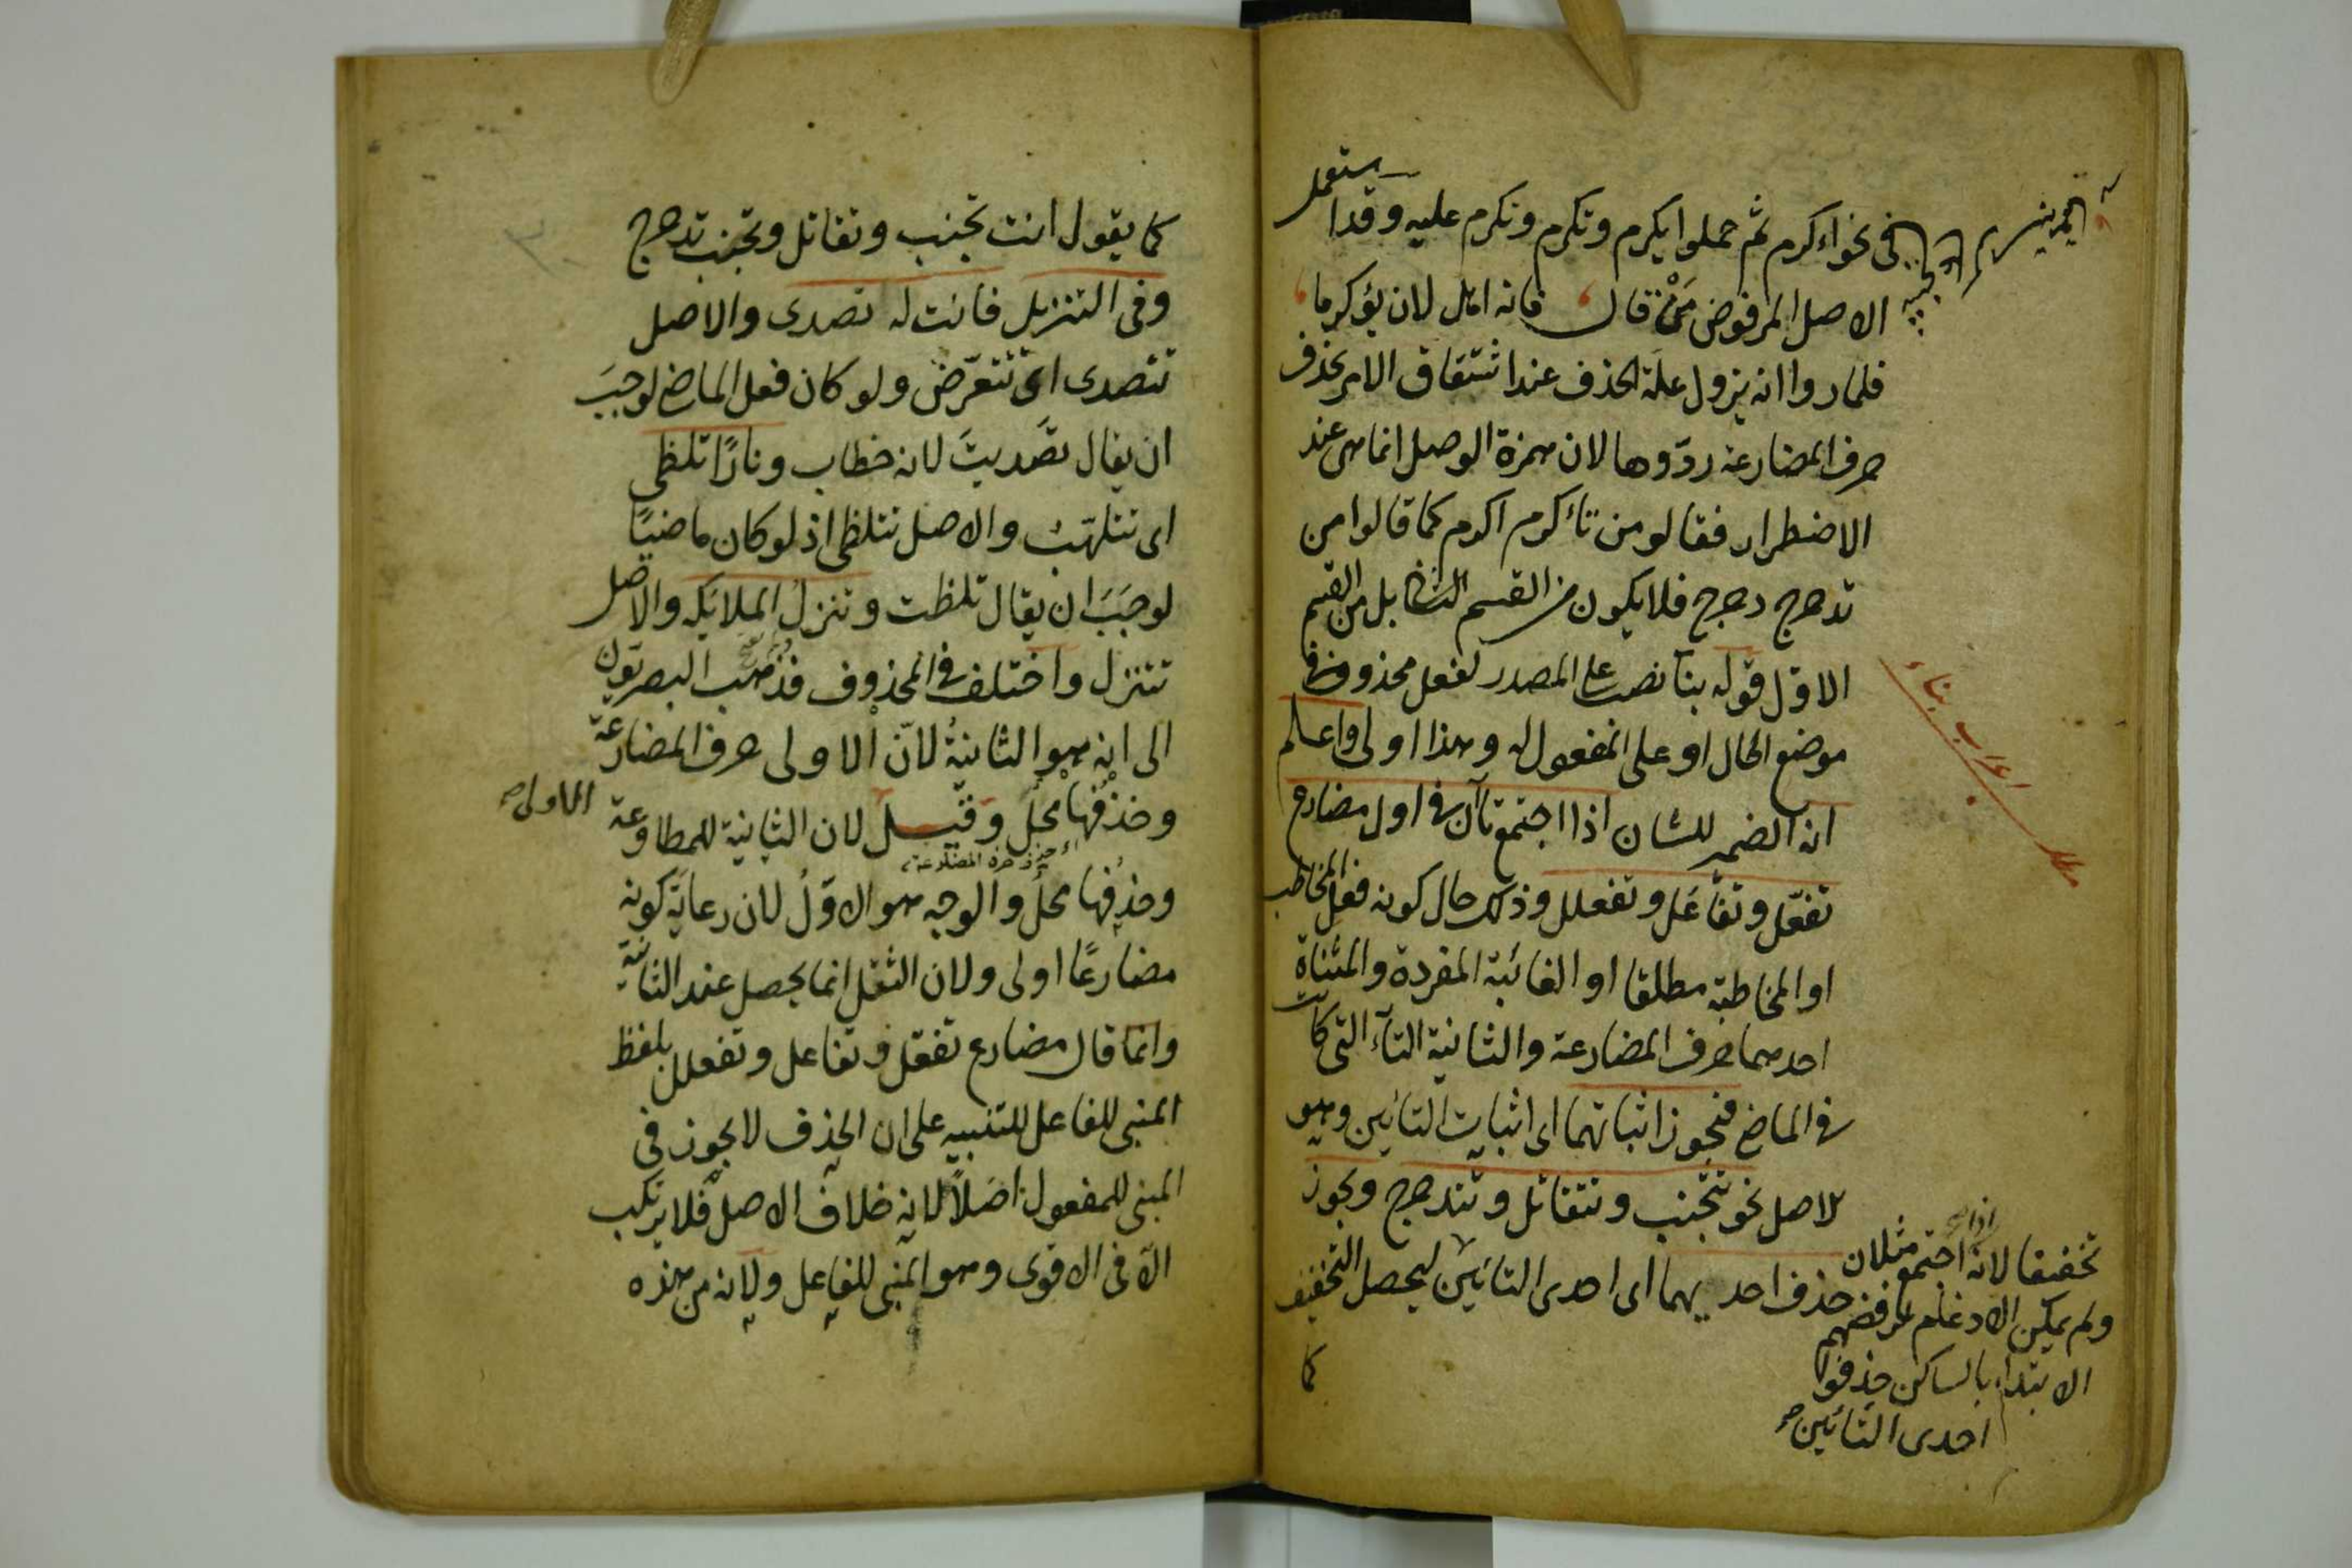 الهمزتين
فى نحو اءكرم ثم حملوا يكرم وتكرم ونكرم عليه وقد استعمل
الاصل المرفوض مَنْ قال فانه اهل لان يؤكرما
فلما راوا انه يزول علة الحذف عند اشتقاق الامر بحذف
حرف المضارعة ردّوها لان همزة الوصل انما هى عند
الاضطرار فقالو من تاءكرم اكرم كما قالوا من
تدحرج دحرج فلا يكون من القسم الثانى بل من القسم
الاول قوله بنآ نصب على المصدر لفعل محذوف فى
موضع الحال او على المفعول له وهذا اولى واعلم
انه الضمير للشان اذا اجتمع تاآن فى اول مضارع
تفعّل وتفاعَل وتفعلل وذلك حال كونه فعل المخاطب
او المخاطبة مطلقا او الغائبة المفردة والمثناة
احدهما حرف المضارعة والثانية التآء التى كانت
فى الماضى فيجوز اثباتهما اى اثبات التائين وهو
الاصل نحو تتجنب وتتقاتل وتتدحرج ويجوز
حذف احديهما اى احدى التائين ليحصل التخفيف
كما
اعراب بناء
تخفيفا لانه اذا اجتمع مثلان
ولم يمكن الادغام لرفضهم
الابتداء بالساكن حذفوا
احدى التائين صح
كما يقول انت تجنب وتقاتل وتجنب تدحرج
وفى التنزيل فانت له تصدى والاصل
تتصدى اى تتعرّض ولو كان فعل الماضى لوجبَ
ان يقال تصَديتَ لانه خطاب ونارًا تلظى
اى تتلهّب والاصل تتلظى اذ لو كان ماضيًا
لوجَبَ ان يقال تلظت وتنزلُ الملايكه والاصل
تتنزل واختلف فى المحذوف فذهب البصريّون
الى انه هو الثانيةُ لانّ الاولى حرف المضارعة
وحذفُها مخلّ وقيل الاولى صح لان الثانية للمطاوعة
وحذفها مخلّ والوجه هو الاوّلُ لان رعاية كونه
مضارعًا اولى ولان الثقل انما يحصل عند الثانية
وانما قال مضارع تفعّل وتفاعل وتفعلل بلفظ
المبنى للفاعل للتنبيه على ان الحذف لا يجوز فى
المبنى للمفعول اصَلاً لانه خلاف الاصل فلا يرتكب
الاّ فى الاقوى وهو المبنى للفاعل ولانه من هذه